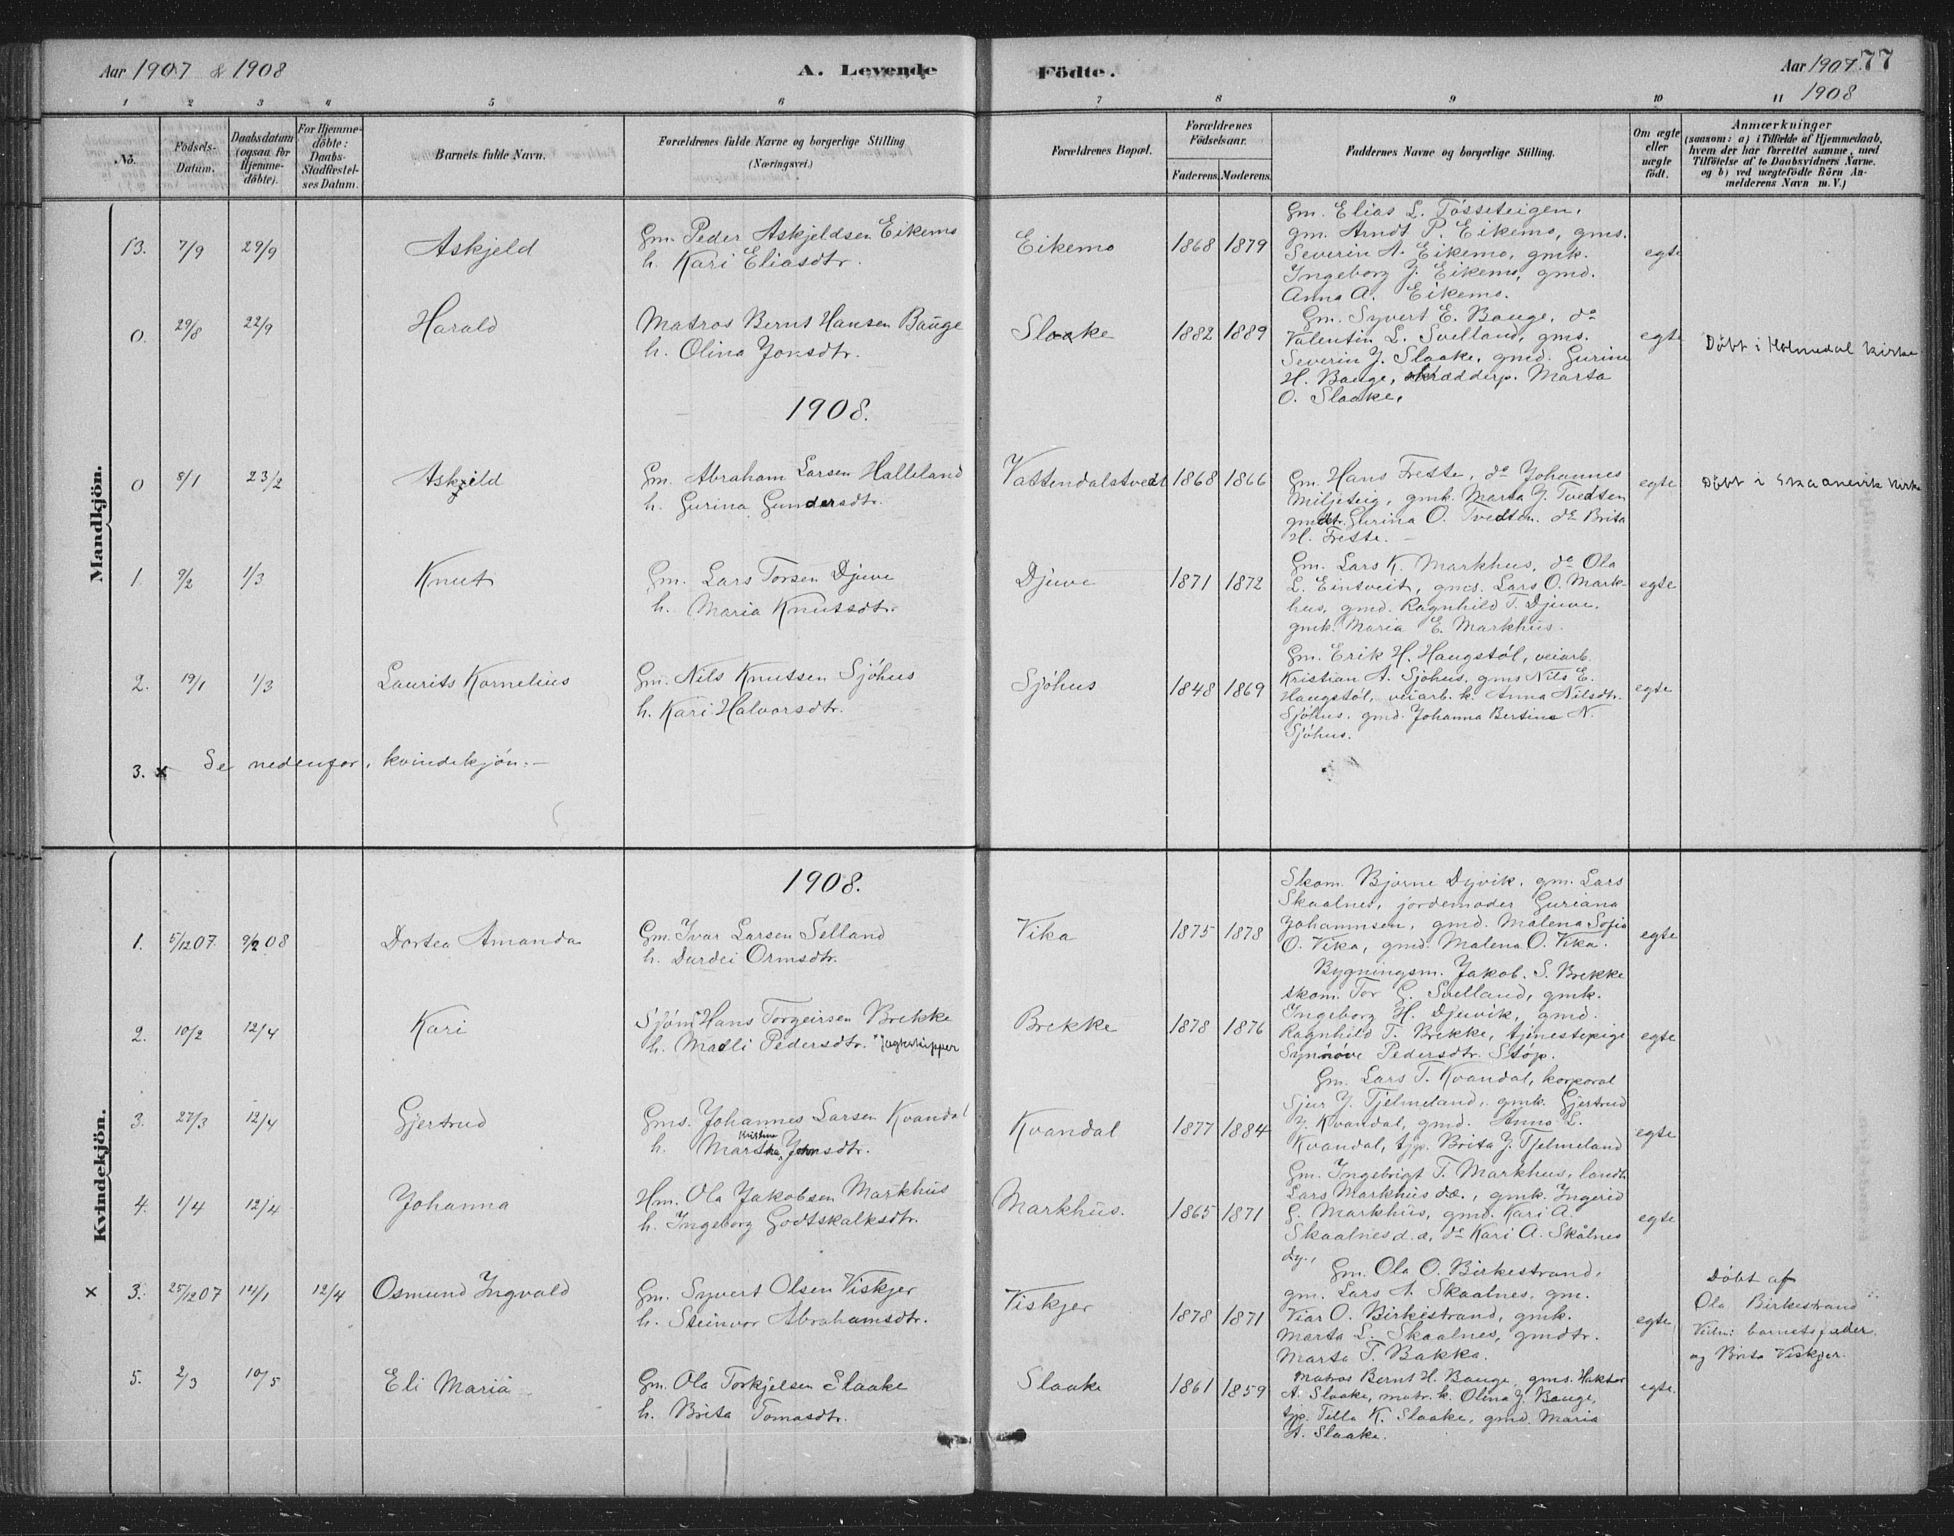 Aar 1907 & 1908
A. Levende Födte.
Aar 1907. 77
1908
1 2 3 4 5 6 7 8 9 10 11
No.
Födsels-
Datum.
Daabsdatum
(ogsaa for
Hjemme-
döbte).
For Hjemme-
döbte:
Daabs-
Stadfæstel-
ses Datum.
Barnets fulde Navn.
Forældrenes fulde Navne og borgerlige Stilling
(Næringsvei.)
Forældrenes Bopæl.
Forældrenes
Födselsaar.
Faderens. Moderens.
Faddernes Navne og borgerlige Stilling.
Om ægte
eller
uægte
födt.
Anmærkninger
(saasom: a) i Tilfælde af Hjemmedaab,
hvem der har forrettet samme, med
Tilföielse af to Daabsvidners Navne,
og b) ved uægtefödte Börn An-
melderens Navn m. V.)
Mandkjön.
13. 7/9 29/9 Askjeld
Gm. Peder Askjeldsen Eikemo
h. Kari Eliasdtr.
Eikemo 1868 1879
Gm. Elias L. Tösseteigen,
gm. Arndt P. Eikemo, gms.
Severin A. Eikemo, gmk.
Ingeborg J. Eikemo, gmd.
Anna A. Eikemo.
egte
0. 29/8 22/9 Harald
Matros Bernt Hansen Bauge
h. Olina Jonsdtr.
Slaake 1882 1889
Gm. Syvert E. Bauge, do
Valentin L. Svelland, gms.
Severin J. Slaake, gmd. Gurine
H. Bauge, skrædderp. Marta
O. Slaake.
egte
Döbt i Holmedal Kirke
1908.
0 8/1 23/2 Askjeld
Gm. Abraham Larsen Halleland
h. Gurina Gundersdtr.
Vattendalstvedt 1868 1866
Gm. Hans Frette, do Johannes
Miljeteig, gmk. Marta J. Tvedten
gmdtr. Gurina O. Tvedten. do Brita
H. Frette. —
egte
Döbt i Skaanevik Kirke
1. 9/2 1/3 Knut
Gm. Lars Torsen Djuve
h. Maria Knutsdtr.
Djuve 1871 1872
Gm. Lars K. Markhus, do Ola
L. Eintveit, gms. Lars O. Mark-
hus, gmd. Ragnhild T. Djuve.
gmk. Maria E. Markhus.
egte
2. 19/1 1/3 Laurits Kornelius
Gm. Nils Knutsen Sjöhus
h. Kari Halvorsdtr.
Sjöhus 1848 1869
Gm. Erik H. Haugstöl, veiarb.
Kristian A. Sjöhus, gms Nils E.
Haugstöl, veiarb. k. Anna Nilsdtr.
Sjöhus, gmd. Johanna Bertine N.
Sjöhus.
egte
3. x Se nedenfor, kvindekjön. —
Kvindekjön.
1908.
1. 5/12 07 9/2 08 Dortea Amanda
Gm. Ivar Larsen Selland
h. Durdei Ormsdtr.
Vika 1875 1878
Skom. Bjorne Dyvik, gm. Lars
Skaalnes, jordemoder Guriana
Johannsen, gmd. Malena Sofia
O. Vika, gmd. Malena O. Vika.
egte
2. 10/2 12/4 Kari
Sjöm x Hans Torgeirsen Brekke
h. Madli Pedersdtr. x Jagtskipper
Brekke 1878 1876
Bygningsm. Jakob S. Brekke
skom. Tor G. Svelland, gmk.
Ingeborg H. Djuvik, gmd.
Ragnhild T. Brekke, tjenestepige
Synnöve Pedersdtr. Stöp.
egte
3. 27/3 12/4 Gjertrud
Gms. Johannes Larsen Kvandal
h. Martha Kristine Johnsdtr.
Kvandal 1877 1884
Gm. Lars T. Kvandal, korporal
Sjur J. Tjelmeland, gmk. Gjertrud
J. Kvandal, gmd. Anna L.
Kvandal, tjp. Brita J. Tjelmeland
egte
4. 1/4 12/4 Johanna
Hm. Ola Jakobsen Markhus
h. Ingeborg Godtskalksdtr.
Markhus. 1865 1871
Gm. Ingebrigt T. Markhus, landh.
Lars Markhus d.æ., gmk. Ingerid
G. Markhus, gmd. Kari A.
Skaalnes d. æ, do Kari A. Skålnes
d.y.,
egte
x 3. 25/12 07 14/1 12/4 Osmund Ingvald
Gm. Syvert Olsen Viskjer
h. Steinvor Abrahamsdtr.
Viskjer 1878 1871
Gm. Ola O. Birkestrand,
gm. Lars A. Skaalnes, gm.
Viar O. Birkestrand, gmk.
Marta L. Skaalnes, gmdtr.
Marta T. Bakka.
egte
Döbt af
Ola Birkestrand
Vidn: barnets fader
og Brita Viskjer.
5. 2/3 10/5 Eli Maria
Gm. Ola Torkjelsen Slaake
h. Brita Tomasdtr.
Slaake 1861 1859
Matros Bernt H. Bauge, gms. Hektor
A. Slaake, matr. k. Olina J. Bauge,
tjp. Tilla K. Slaake, gmd. Maria
A. Slaake.
egte.